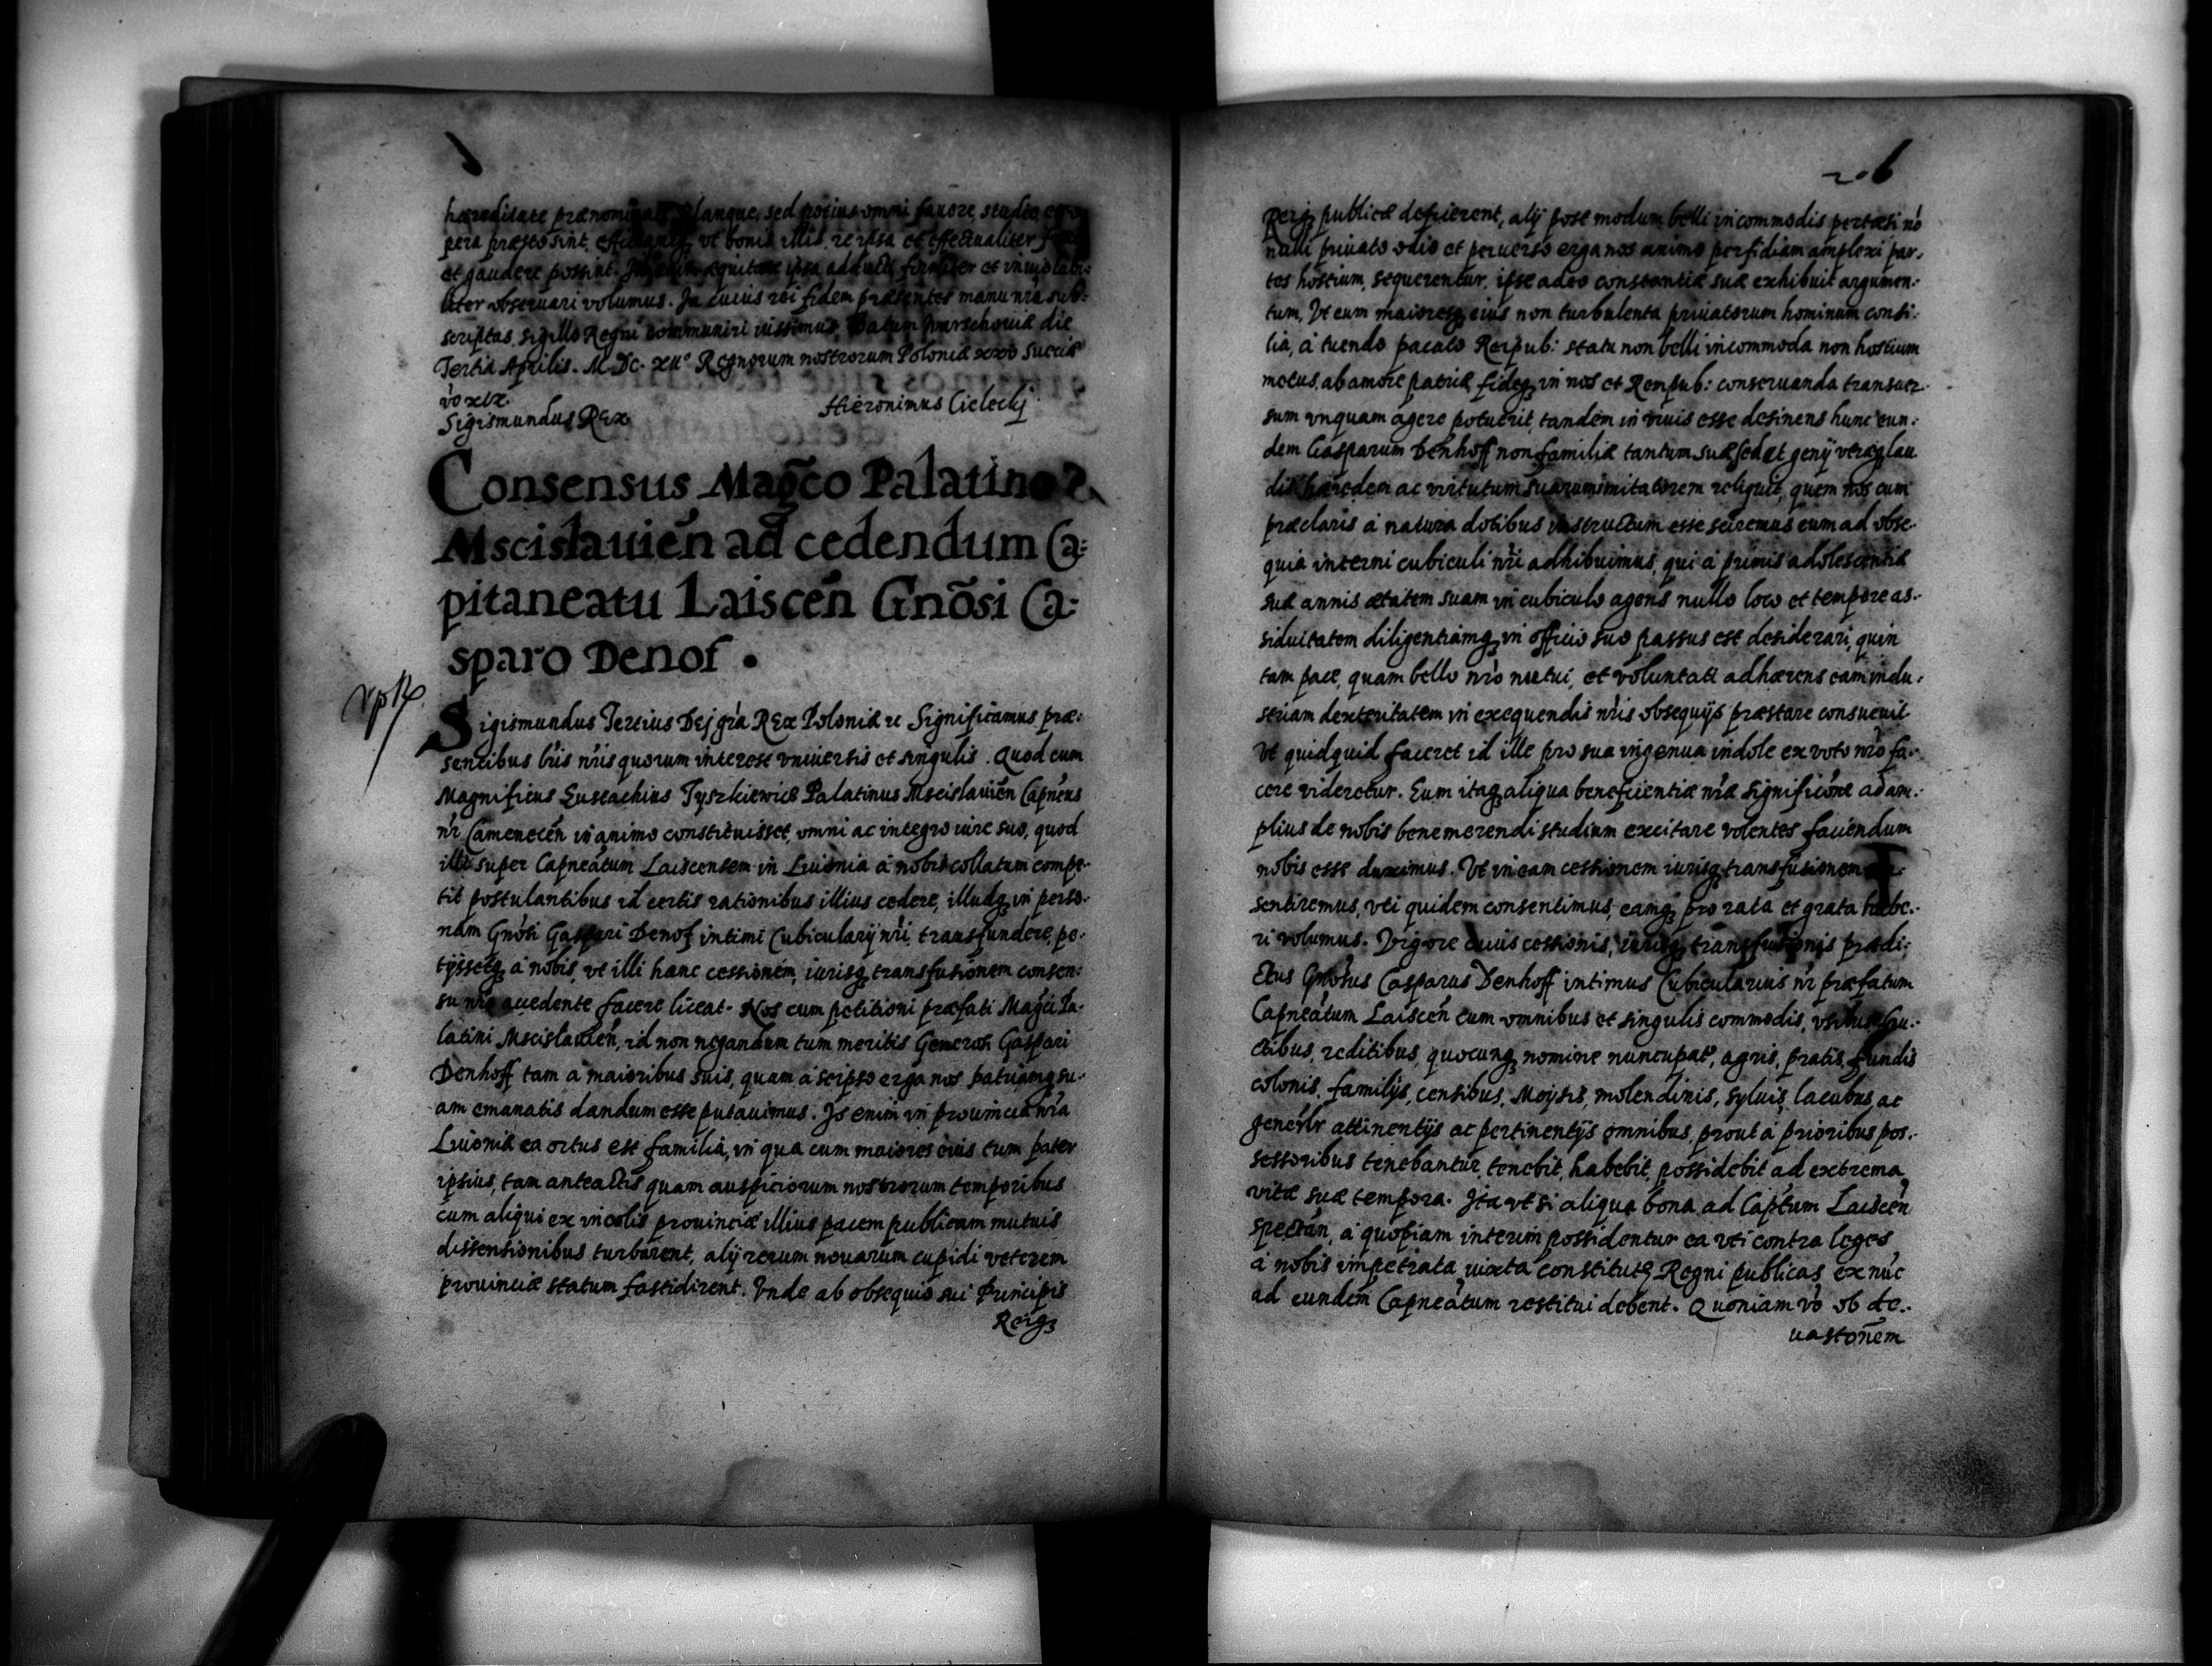 hæreditate prænominatis Plangue, sed potius omni fauore, studio,
pera præsto sint, vt bonis illis, re ipsa et effectualiter
et gaudere possint. æquitate ipsa adducti firmiter et inuiolabi:
liter obseruari volumus. In cuius rei fidem præsentes manu nrã sub:
scriptas, sigillo Regni communiri iussimus, Datum Warschouiæ die
Tertia Aprilis. M. Dc. XII° Regnorum nostrorum Poloniæ xxv Sueciæ
vo xix.
Sigismundus Rex Hieronimus Cielecky
Consensus Magco Palatino
Mscislauien ad cedendum Ca:
pitaneatu Laiscen Gnosi Ca:
sparo Denof .
Sigismundus Tertius Dej gra Rex Poloniæ &c Significamus præ:
sentibus lris nris quorum interest vniuersis et singulis. Quod cum
Magnificus Eustachius Tyszkiewicz Palatinus Mscislauien Capneus
nr Camenecen in animo constituisset, omni ac integro iure suo, quod
illi super Capneatum Laiscensem in Liuonia à nobis collatum compe-
tit postulantibus id certis rationibus illius cedere, illudq in perso-
nam Gnosi Gaspari Denof intimi Cubicularij nri, transfundere, pe-
tijssetq à nobis, vt illi hanc cessionem, iurisq transfusionem consen:
su nro accedente facere liceat. Nos cum petitioni præfati Magci Pa-
latini Mscislauien, id non negandum tum meritis Generosi Gaspari
Denhoff tam à maioribus suis, quam à seipso erga nos patriamq su-
am emanatis dandum esse putauimus. Is enim in prouincia nra
Liuoniæ ea ortus est familia, in qua cum maiores eius tum pater
ipsius, tam anteactis quam auspiciorum nostrorum temporibus
cum aliqui ex incolis prouinciæ illius pacem publicam mutuis
dissensionibus turbarent, alij rerum nouarum cupidi veterem
prouinciæ statum fastidirent. Vnde ab obsequio sui Principis
Reiq
206
Reiq publicæ deficerent, alij post modum belli incommodis pertæsi no
nulli priuato odio et peruerso erga nos animo perfidiam amplexi par-
tes hostium, sequerentur, ipse adeo constantiæ suæ exhibuit argumen:
tum, Vt eum maioresq eius non turbulenta priuatorum hominum consi:
lia, à tuendo pacato Reipub: statu non belli incommoda non hostium
metus, ab amore patriæ fideq in nos et Rempub: conseruanda transuer-
sum vnquam agere potuerit, tandem in viuis esse desinens hunc eun:
dem Gasparum Denhoff non familiæ tantum suæ sed et genij veræq lau
dis hæredem ac virtutum suarum imitatorem reliquit, quem nos cum
præclaris à natura dotibus instructum esse sciremus eum ad obse-
quia interni cubiculi nri adhibuimus, qui à primis adolescentiæ
suæ annis ætatem suam in cubiculo agens nullo loco et tempore as-
siduitatem diligentiamq in officio suo passus est desiderari, quin
tam pace, quam bello nro nutui, et voluntati adhærens eam indu-
striam dexteritatem in exequendis nris obsequijs præstare consueuit
Vt quidquid faceret id ille pro sua ingenua indole ex voto nro fa-
cere videretur. Eum itaq aliqua beneficientiæ nræ significone ad am:
plius de nobis benemerendi studium excitare volentes faciendum
nobis esse duximus. Vt in eam cessionem iurisq transfusionem
sentiremus, vti quidem consentimus, eamq pro rata et grata habe-
ri volumus. Vigore cuius cessionis, iurisq transfusionis prædi:
ctus Gnosus Casparus Denhoff intimus Cubicularius nr præfatum
Capneatum Laiscen cum omnibus et singulis commodis, vsibus, fru-
ctibus, reditibus, quocunq nomine nuncupat, agris, pratis, fundis
colonis, familijs, censibus, Moysis, molendinis, syluis, lacubus, ac
generlr attinentijs ac pertinentijs omnibus, prout à prioribus pos-
sessoribus tenebantur, tenebit, habebit, possidebit ad extrema
vitæ suæ tempora. Ita vt si aliqua bona ad Captum Laiscen
spectan, à quopiam interim possidentur ea vti contra leges
à nobis impetrata iuxta constitut Regni publicas ex nuc
ad eundem Capneatum restitui debent. Quoniam vo ob de-
uastonem